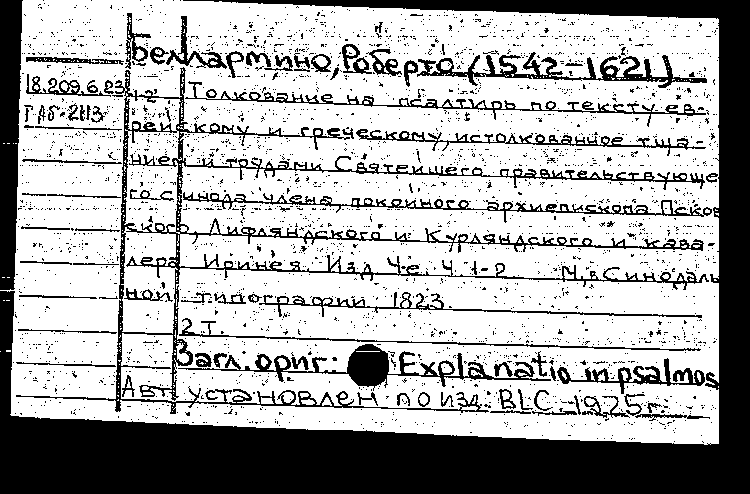 Беллармино, Роберто (1542-1621)
18.209.6.23
1-2
Толкование на псалтирь по тексту ев-
рейскому и греческому, истолкованное тща-
нием и трудами Святейшего правительствующе
го синода члена, покойного архиепископа Псков
ского, Лифляндского и Курляндского и кава-
лера Иринея. Изд. 4-е. Ч. 1-2 М., в Синодаль
ной типографии, 1823.
2 т.
Загл. ориг.: Explanatio in psalmos
Авт. установлен по изд.: BLC.-1925г.